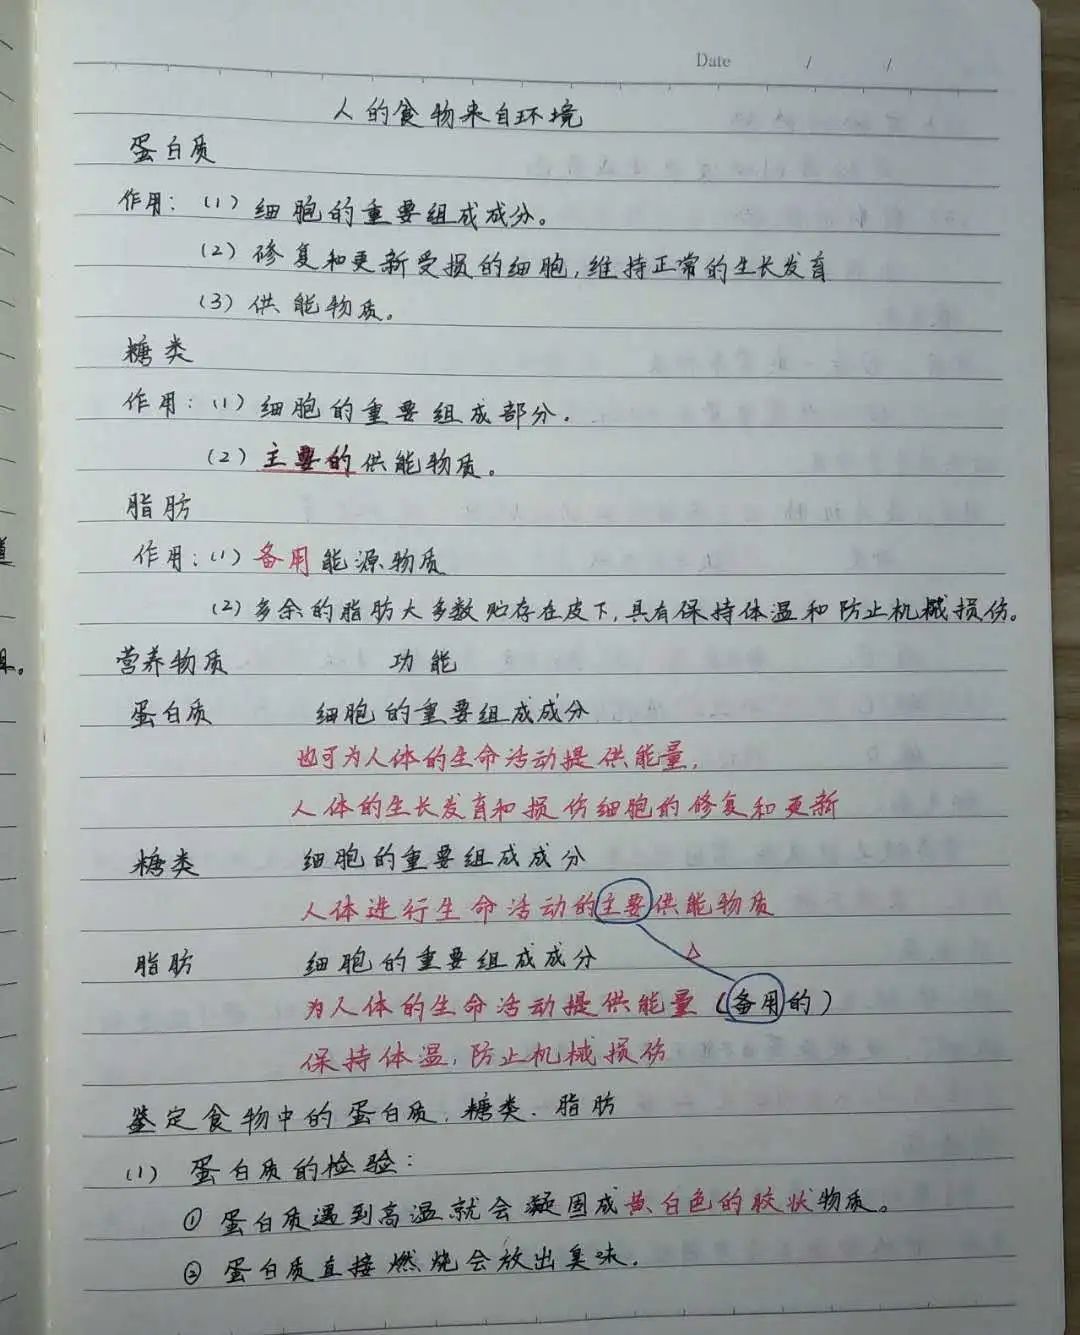 Date / /
人的食物来自环境
蛋白质
作用：(1) 细胞的重要组成成分。
(2) 修复和更新受损的细胞,维持正常的生长发育
(3) 供能物质。
糖类
作用：(1) 细胞的重要组成部分.
(2) 主要的供能物质。
脂肪
作用：(1) 备用能源物质
(2) 多余的脂肪大多数贮存在皮下,具有保持体温和防止机械损伤。
营养物质 功能
蛋白质 细胞的重要组成成分
也可为人体的生命活动提供能量,
人体的生长发育和损伤细胞的修复和更新
糖类 细胞的重要组成成分
人体进行生命活动的主要供能物质
脂肪 细胞的重要组成成分
为人体的生命活动提供能量(备用的)
保持体温,防止机械损伤
鉴定食物中的蛋白质、糖类、脂肪
(1) 蛋白质的检验：
① 蛋白质遇到高温就会凝固成黄白色的胶状物质。
② 蛋白质直接燃烧会放出臭味.